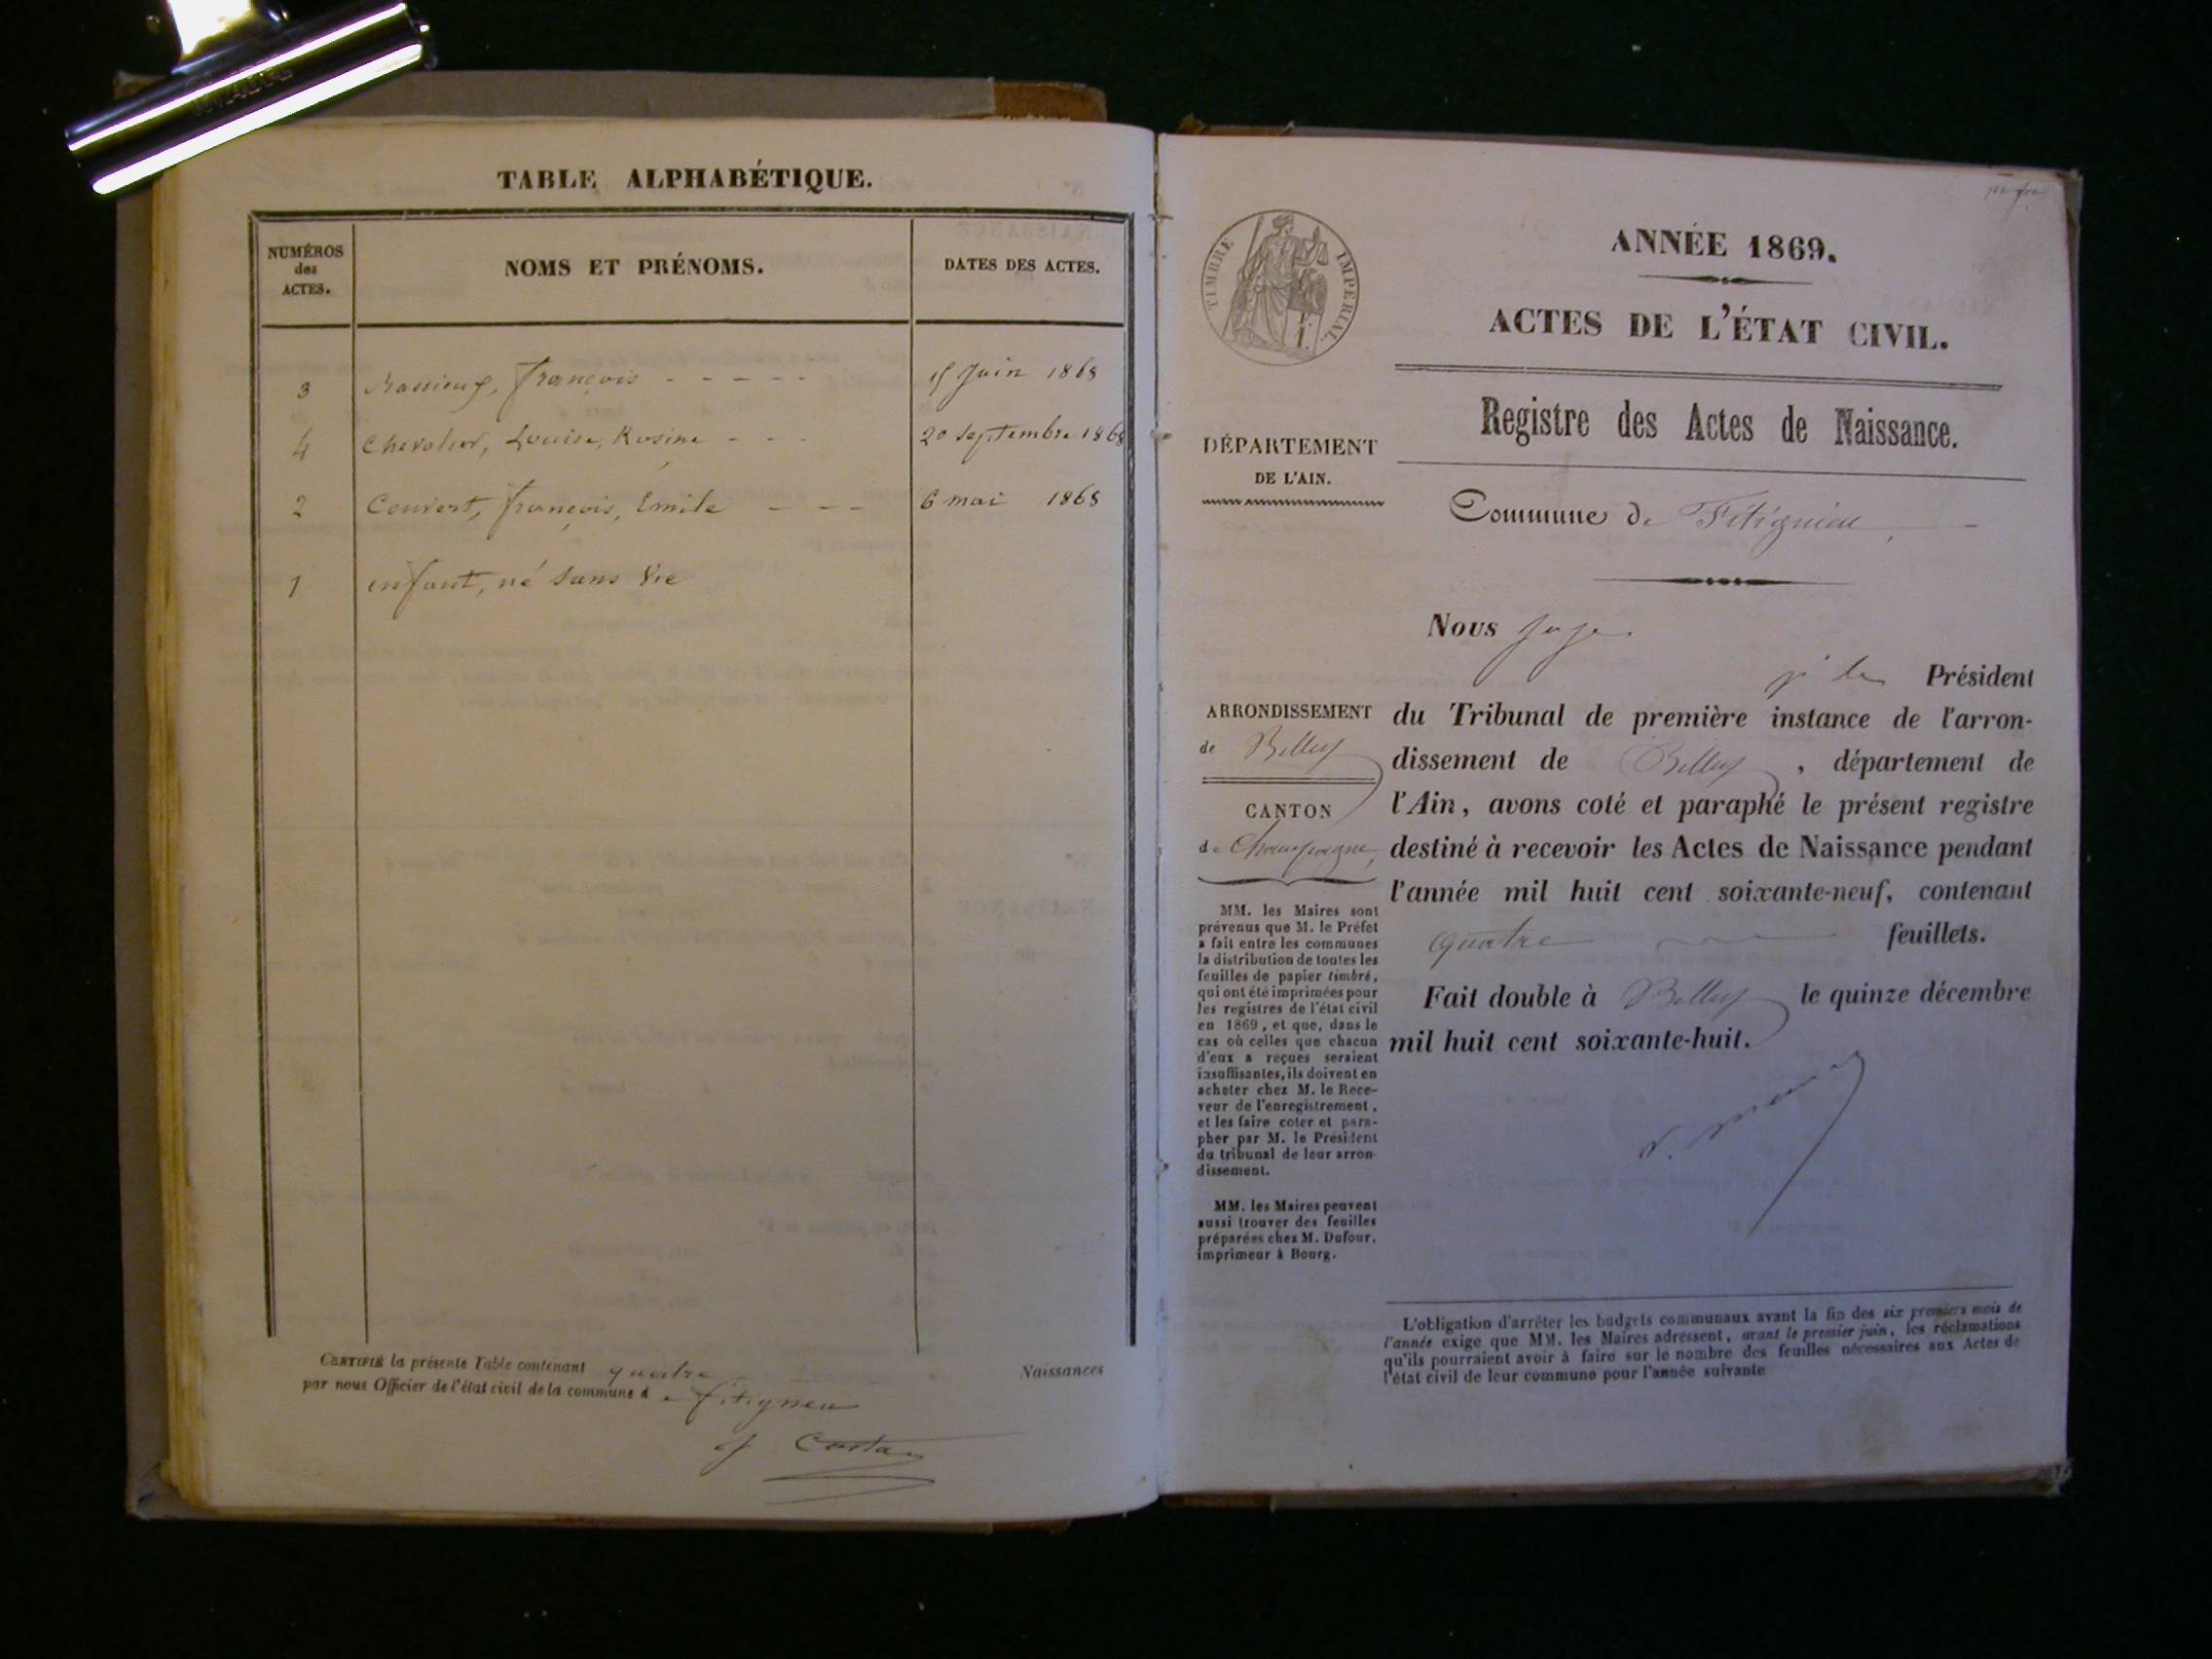 TABLE ALPHABÉTIQUE.
NUMÉROS
des
ACTES.
NOMS ET PRÉNOMS.
DATES DES ACTES.
3 François - - - - - 15 Juin 1868
4 Chevalier, Louise, Rosine - - - 20 septembre 1868
2 Convert, François, Emile - - - 6 mai 1868
1 enfant, né sans vie
CERTIFIÉ la présente Table contenant quatre Naissances
par nous Officier de l'état civil de la commune de fitigneu
TIMBRE IMPÉRIAL.
ANNÉE 1869.
ACTES DE L'ÉTAT CIVIL.
Registre des Actes de Naissance.
DÉPARTEMENT
DE L'AIN.
Commune de Fitignieu,
Nous juge
Président
ARRONDISSEMENT
de Belley
CANTON
de Champagne,
du Tribunal de première instance de l'arron-
dissement de Belley, département de
l'Ain, avons coté et paraphé le présent registre
destiné à recevoir les Actes de Naissance pendant
l'année mil huit cent soixante-neuf, contenant
quatre feuillets.
Fait double à Belley le quinze décembre
mil huit cent soixante-huit.
MM. les Maires sont
prévenus que M. le Préfet
a fait entre les communes
la distribution de toutes les
feuilles de papier timbré,
qui ont été imprimées pour
les registres de l'état civil
en 1869, et que, dans le
cas où celles que chacun
d'eux a reçues seraient
insuffisantes, ils doivent en
acheter chez M. le Rece-
veur de l'enregistrement,
et les faire coter et para-
pher par M. le Président
du tribunal de leur arron-
dissement.
MM. les Maires peuvent
aussi trouver des feuilles
préparées chez M. Dufour,
imprimeur à Bourg.
L'obligation d'arrêter les budgets communaux avant la fin des six premiers mois de
l'année exige que MM. les Maires adressent, avant le premier juin, les réclamations
qu'ils pourraient avoir à faire sur le nombre des feuilles nécessaires aux Actes de
l'état civil de leur commune pour l'année suivante